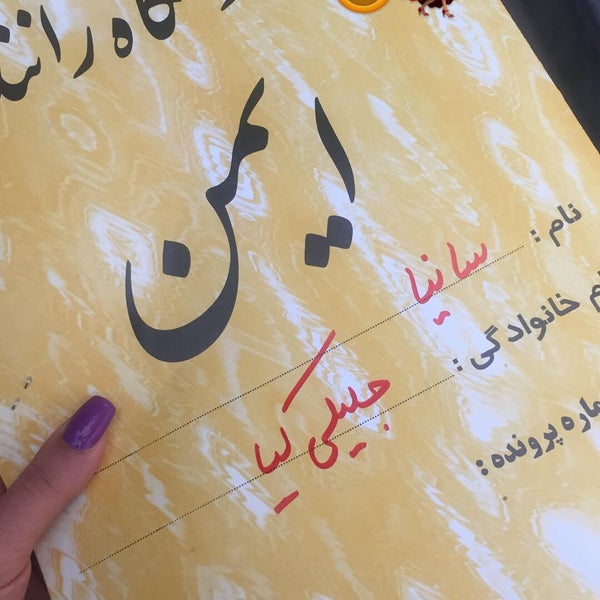 گاه رانند
ایمن
نام : سانیا
م خانوادگی : جلیلی کیا
ماره پرونده :